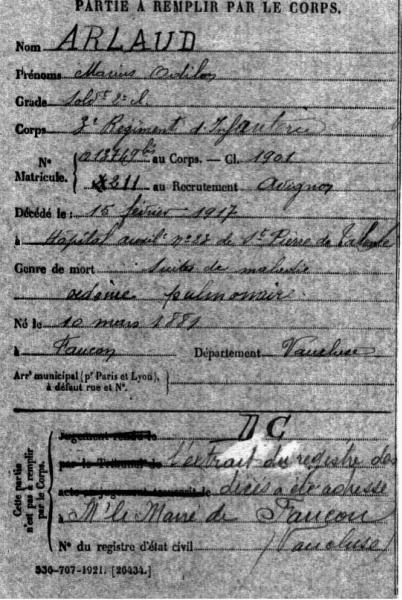 PARTIE À REMPLIR PAR LE CORPS.
Nom ARLAUD
Prénoms Marius Odilon
Grade Soldt 2e cl.
Corps 3e Régiment d'Infanterie
N° Matricule. 013749 bis au Corps. — Cl. 1901
211 au Recrutement Avignon
Décédé le 15 février 1917
à Hôpital auxil. n° 22 de St Pierre de
Genre de mort Suites de maladie
œdème pulmonaire
Né le 10 mars 1881
à Faucon Département Vaucluse
Arrt municipal (pr Paris et Lyon), à défaut rue et N°.
DC
Cette partie n'est pas à remplir par le Corps.
Jugement rendu le
par le Tribunal de l'extrait du registre des
acte ou jugement transcrit le décès a été adressé
à Mr le Maire de Faucon
(Vaucluse)
N° du registre d'état civil
536-707-1921. [26434.]